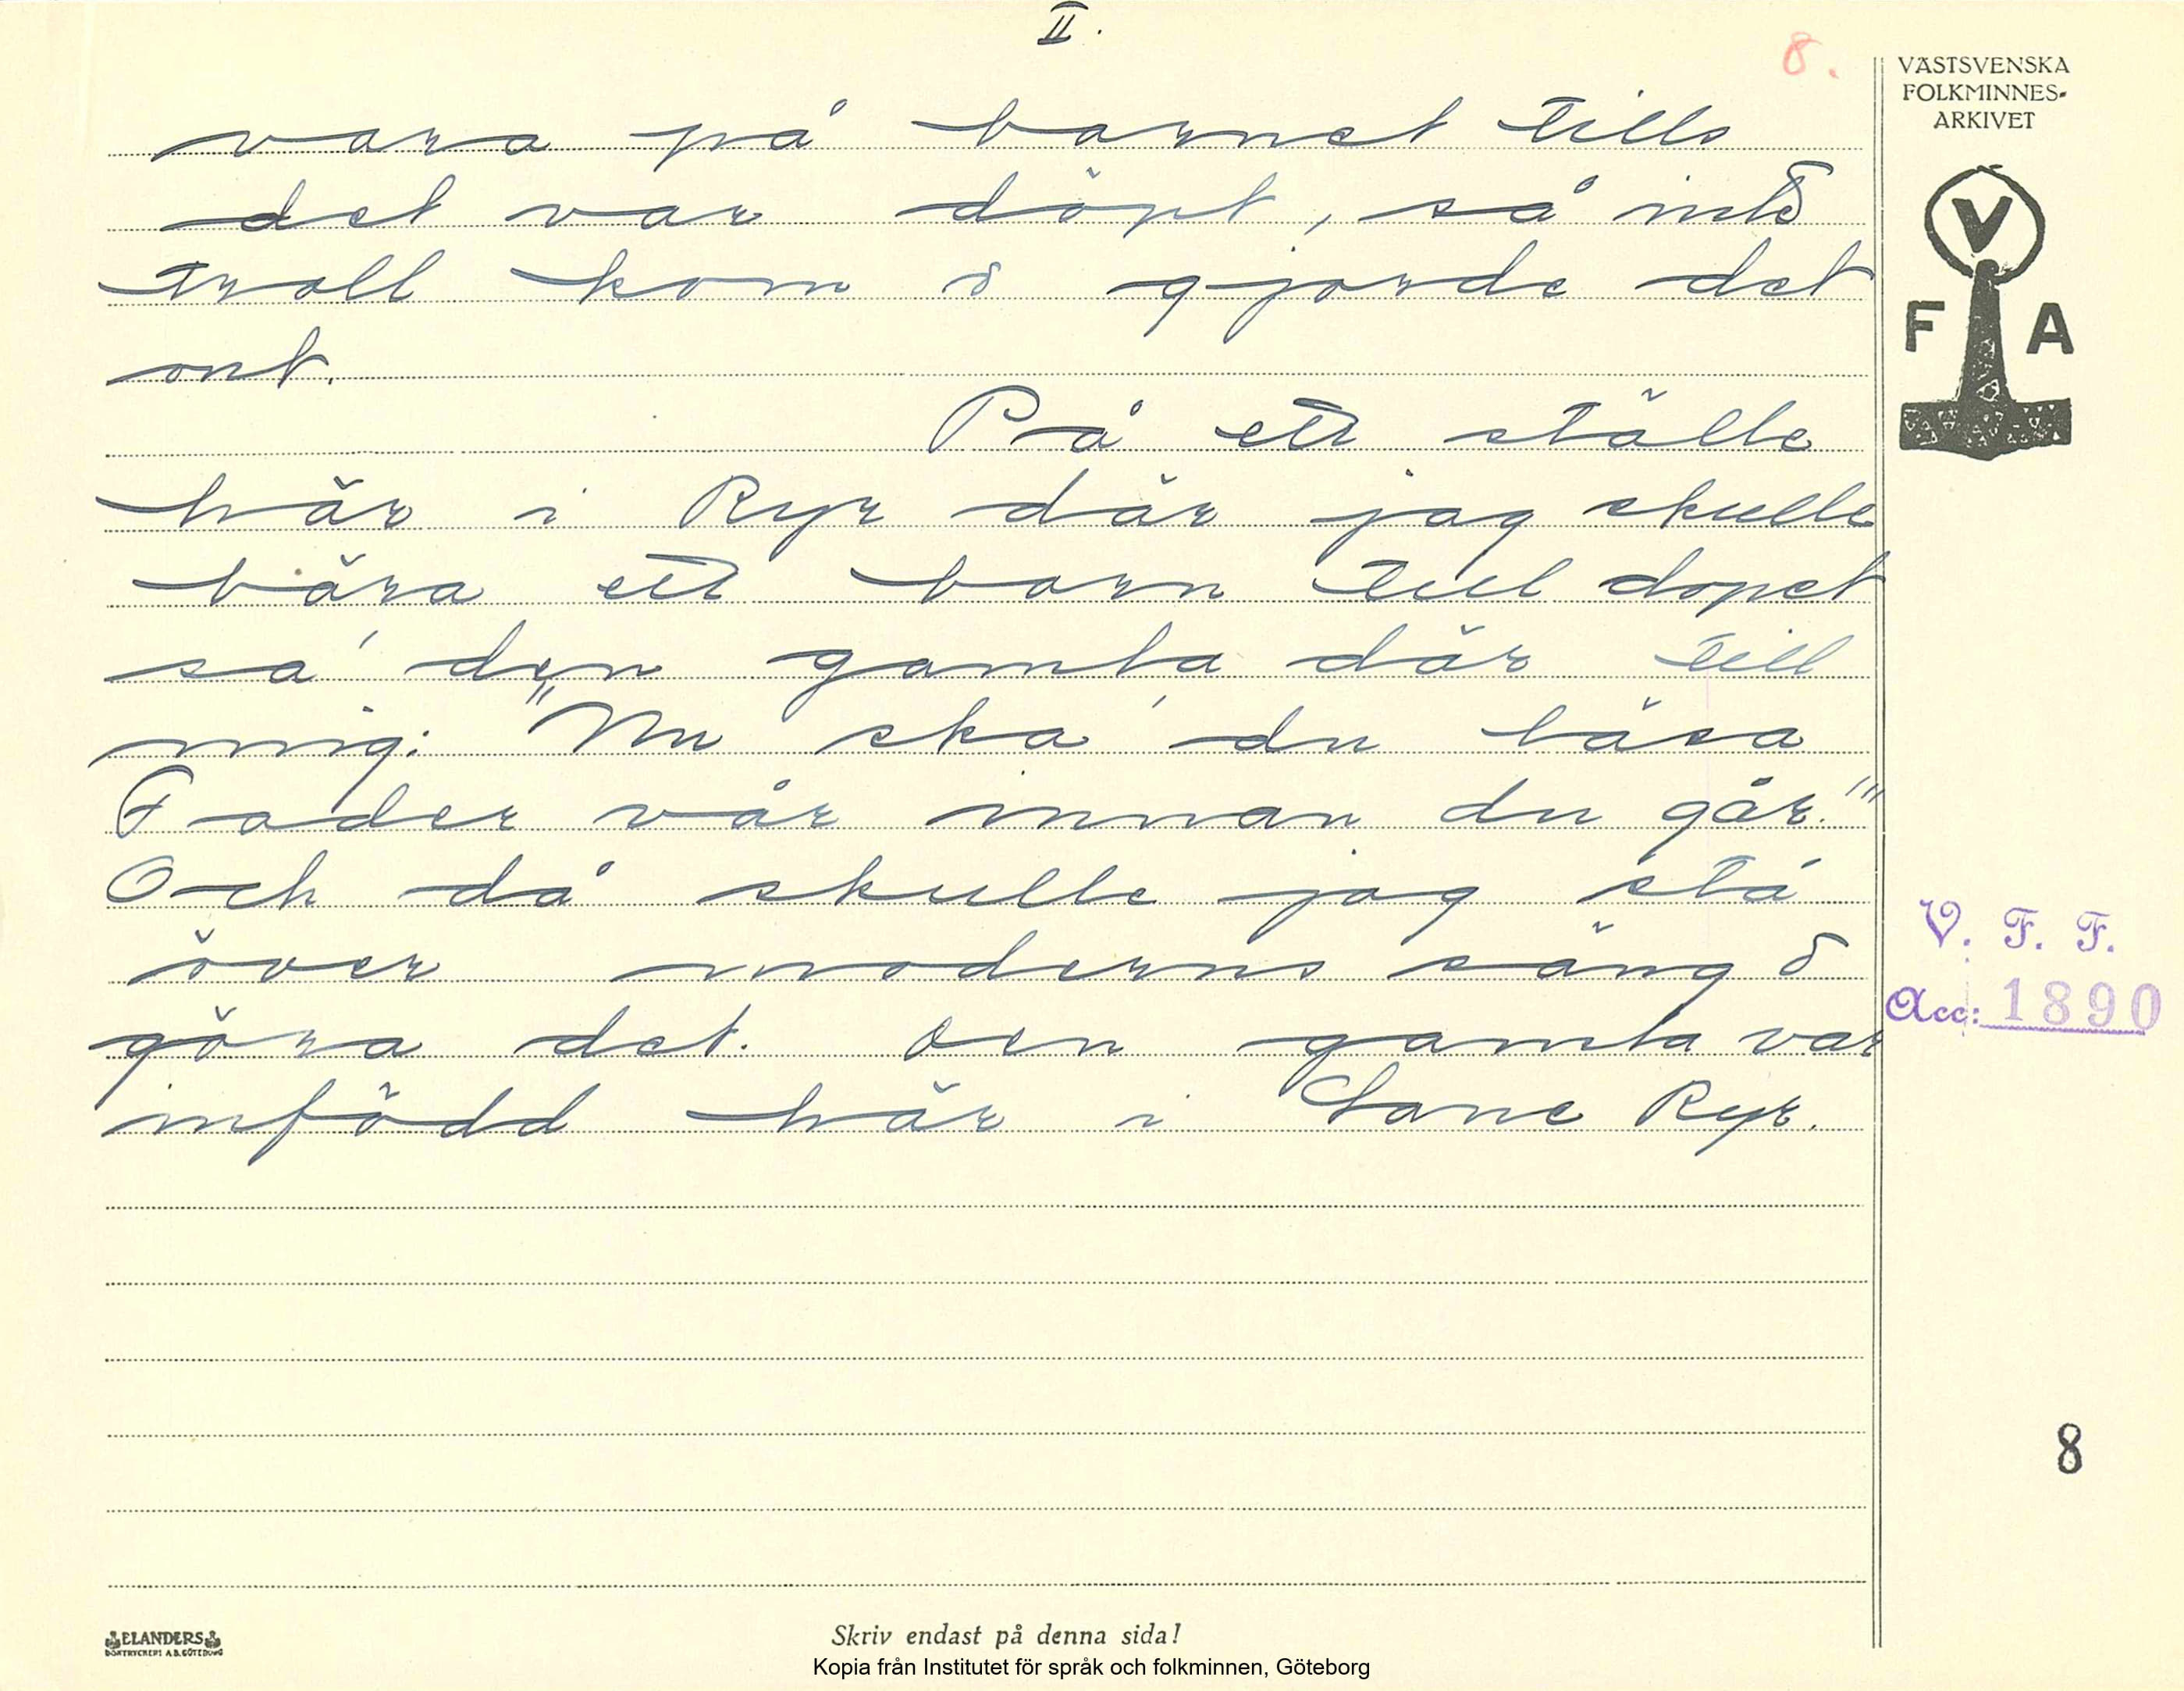 II.
8.
VÄSTSVENSKA
FOLKMINNES-
ARKIVET
V
F A
vara på barnet tills
det var döpt, så inte
troll kom o gjorde det
ont.
På ett ställe
här i Ryr där jag skulle
bära ett barn till dopet
sa' den gamla där till
mig: "Nu ska' du läsa
Fader vår innan du går."
Och då skulle jag stå
över moderns säng o
göra det. Den gamla var
infödd här i Lane Ryr.
V. F. F.
Acc: 1890
8
ELANDERS
BOKTRYCKERI A.B. GÖTEBORG
Skriv endast på denna sida!
Kopia från Institutet för språk och folkminnen, Göteborg